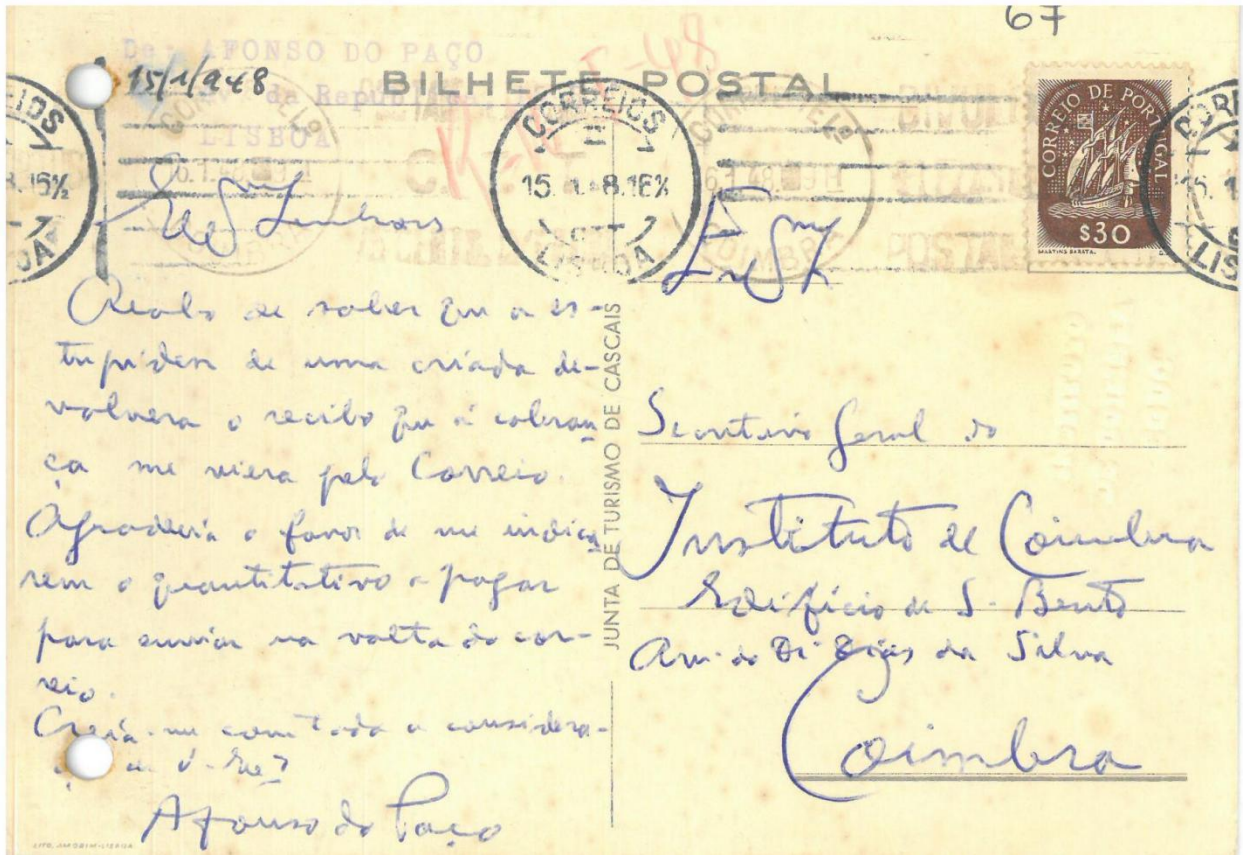 67
De: AFONSO DO PAÇO
15/1/948
BILHETE POSTAL
da Republ
LISBOA
CORREIOS
15. 1. 48. 16½
LISBOA
CORREIO DE PORTUGAL
$30
MARTINS BARATA.
COIMBRA
Senhores
Acabo de saber que a es-
tupidez de uma criada de-
volvera o recibo que à cobran
ça me viera pelo Correio.
Agradecia o favor de me indica
rem o quantitativo a pagar
para enviar na volta do cor-
reio.
Creia-me com toda a considera-
de V. Exª
Afonso do Paço
JUNTA DE TURISMO DE CASCAIS
Exmº
Secretário Geral do
Instituto de Coimbra
Edifício de S. Bento
Av. do Dr Dias da Silva
Coimbra